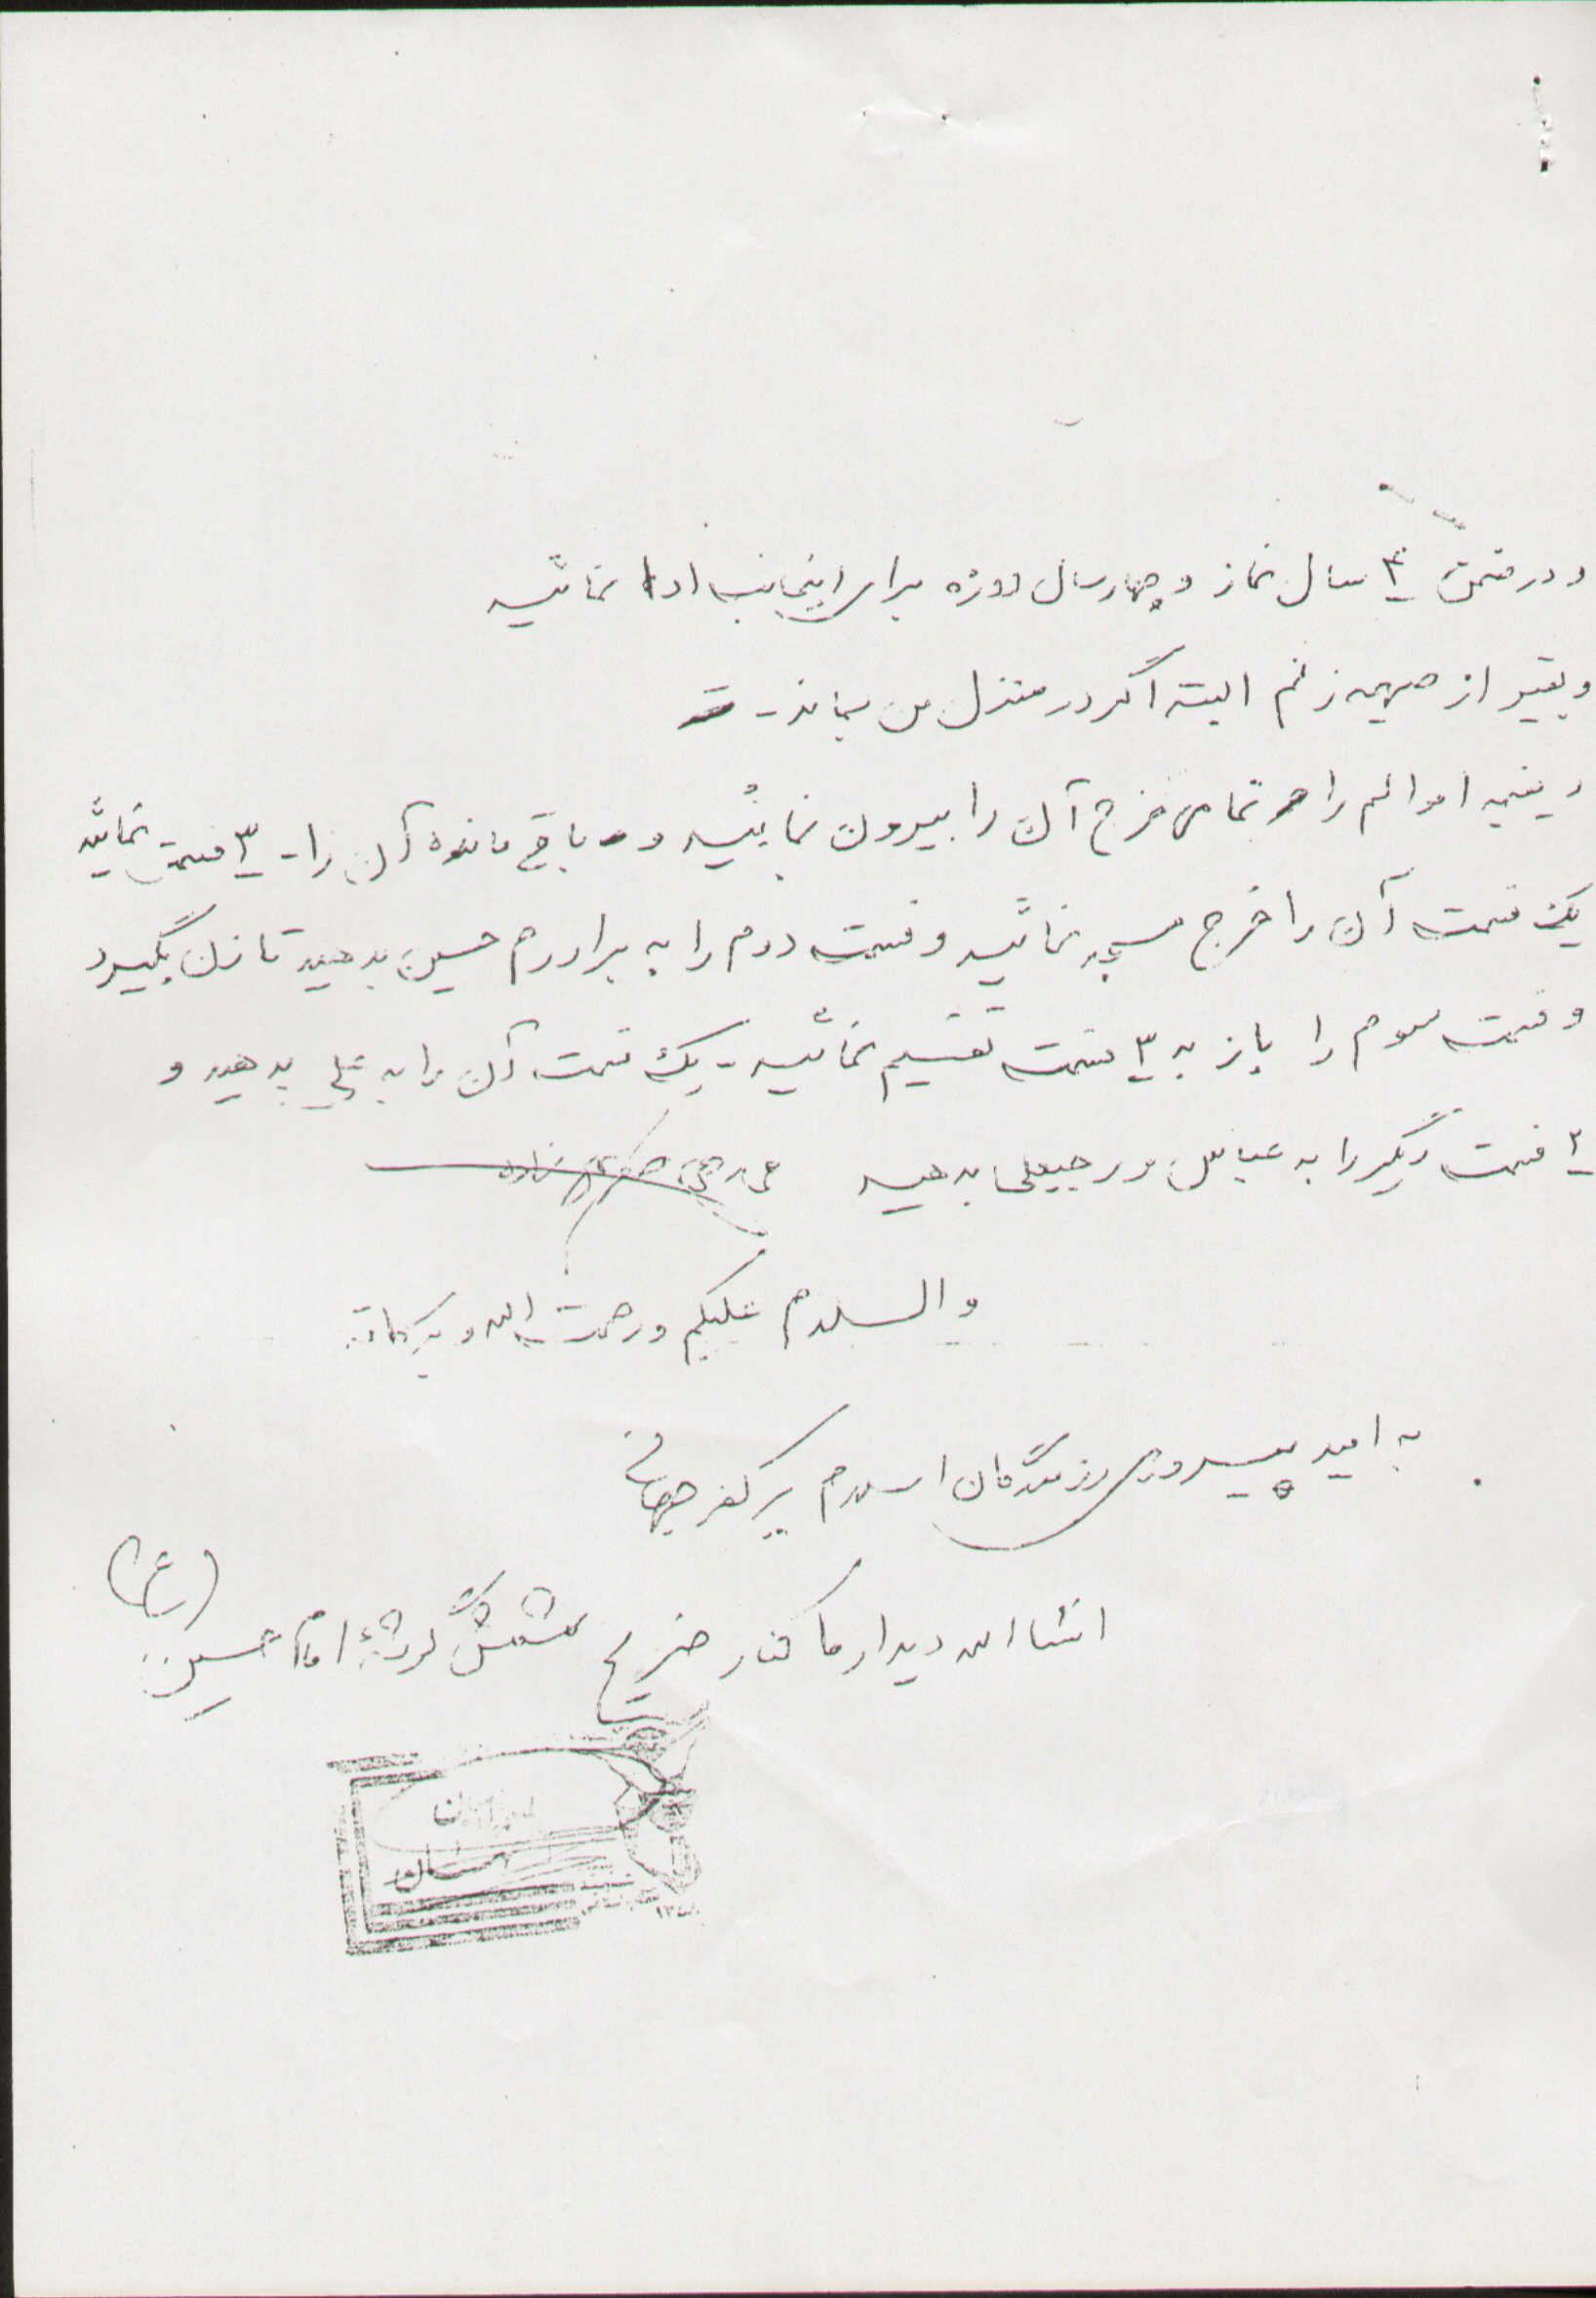 و در ضمن ۴ سال نماز و چهار سال روزه برای اینجانب ادا نمائید
و بغیر از جهیزیه زنم البته اگر در منزل من بماند -
و بقیه اموالم را تمامی خرج آن را بیرون نمایئید و باقی مانده آن را - ۳ قسمت نمائید
یک قسمت آن را خرج مسجد نمائید و قسمت دوم را به برادرم حسین بدهید تا زن بگیرد
و قسمت سوم را باز به ۳ قسمت تقسیم نمائید - یک قسمت آن را به علی بدهید و
۲ قسمت دیگر را به عباس و رجبعلی بدهید
والسلام علیکم و رحمت الله و برکاته
به امید پیروزی رزمندگان اسلام بر کفر جهانی
انشا الله دیدار ما کنار ضریح شش گوشه امام حسین (ع)